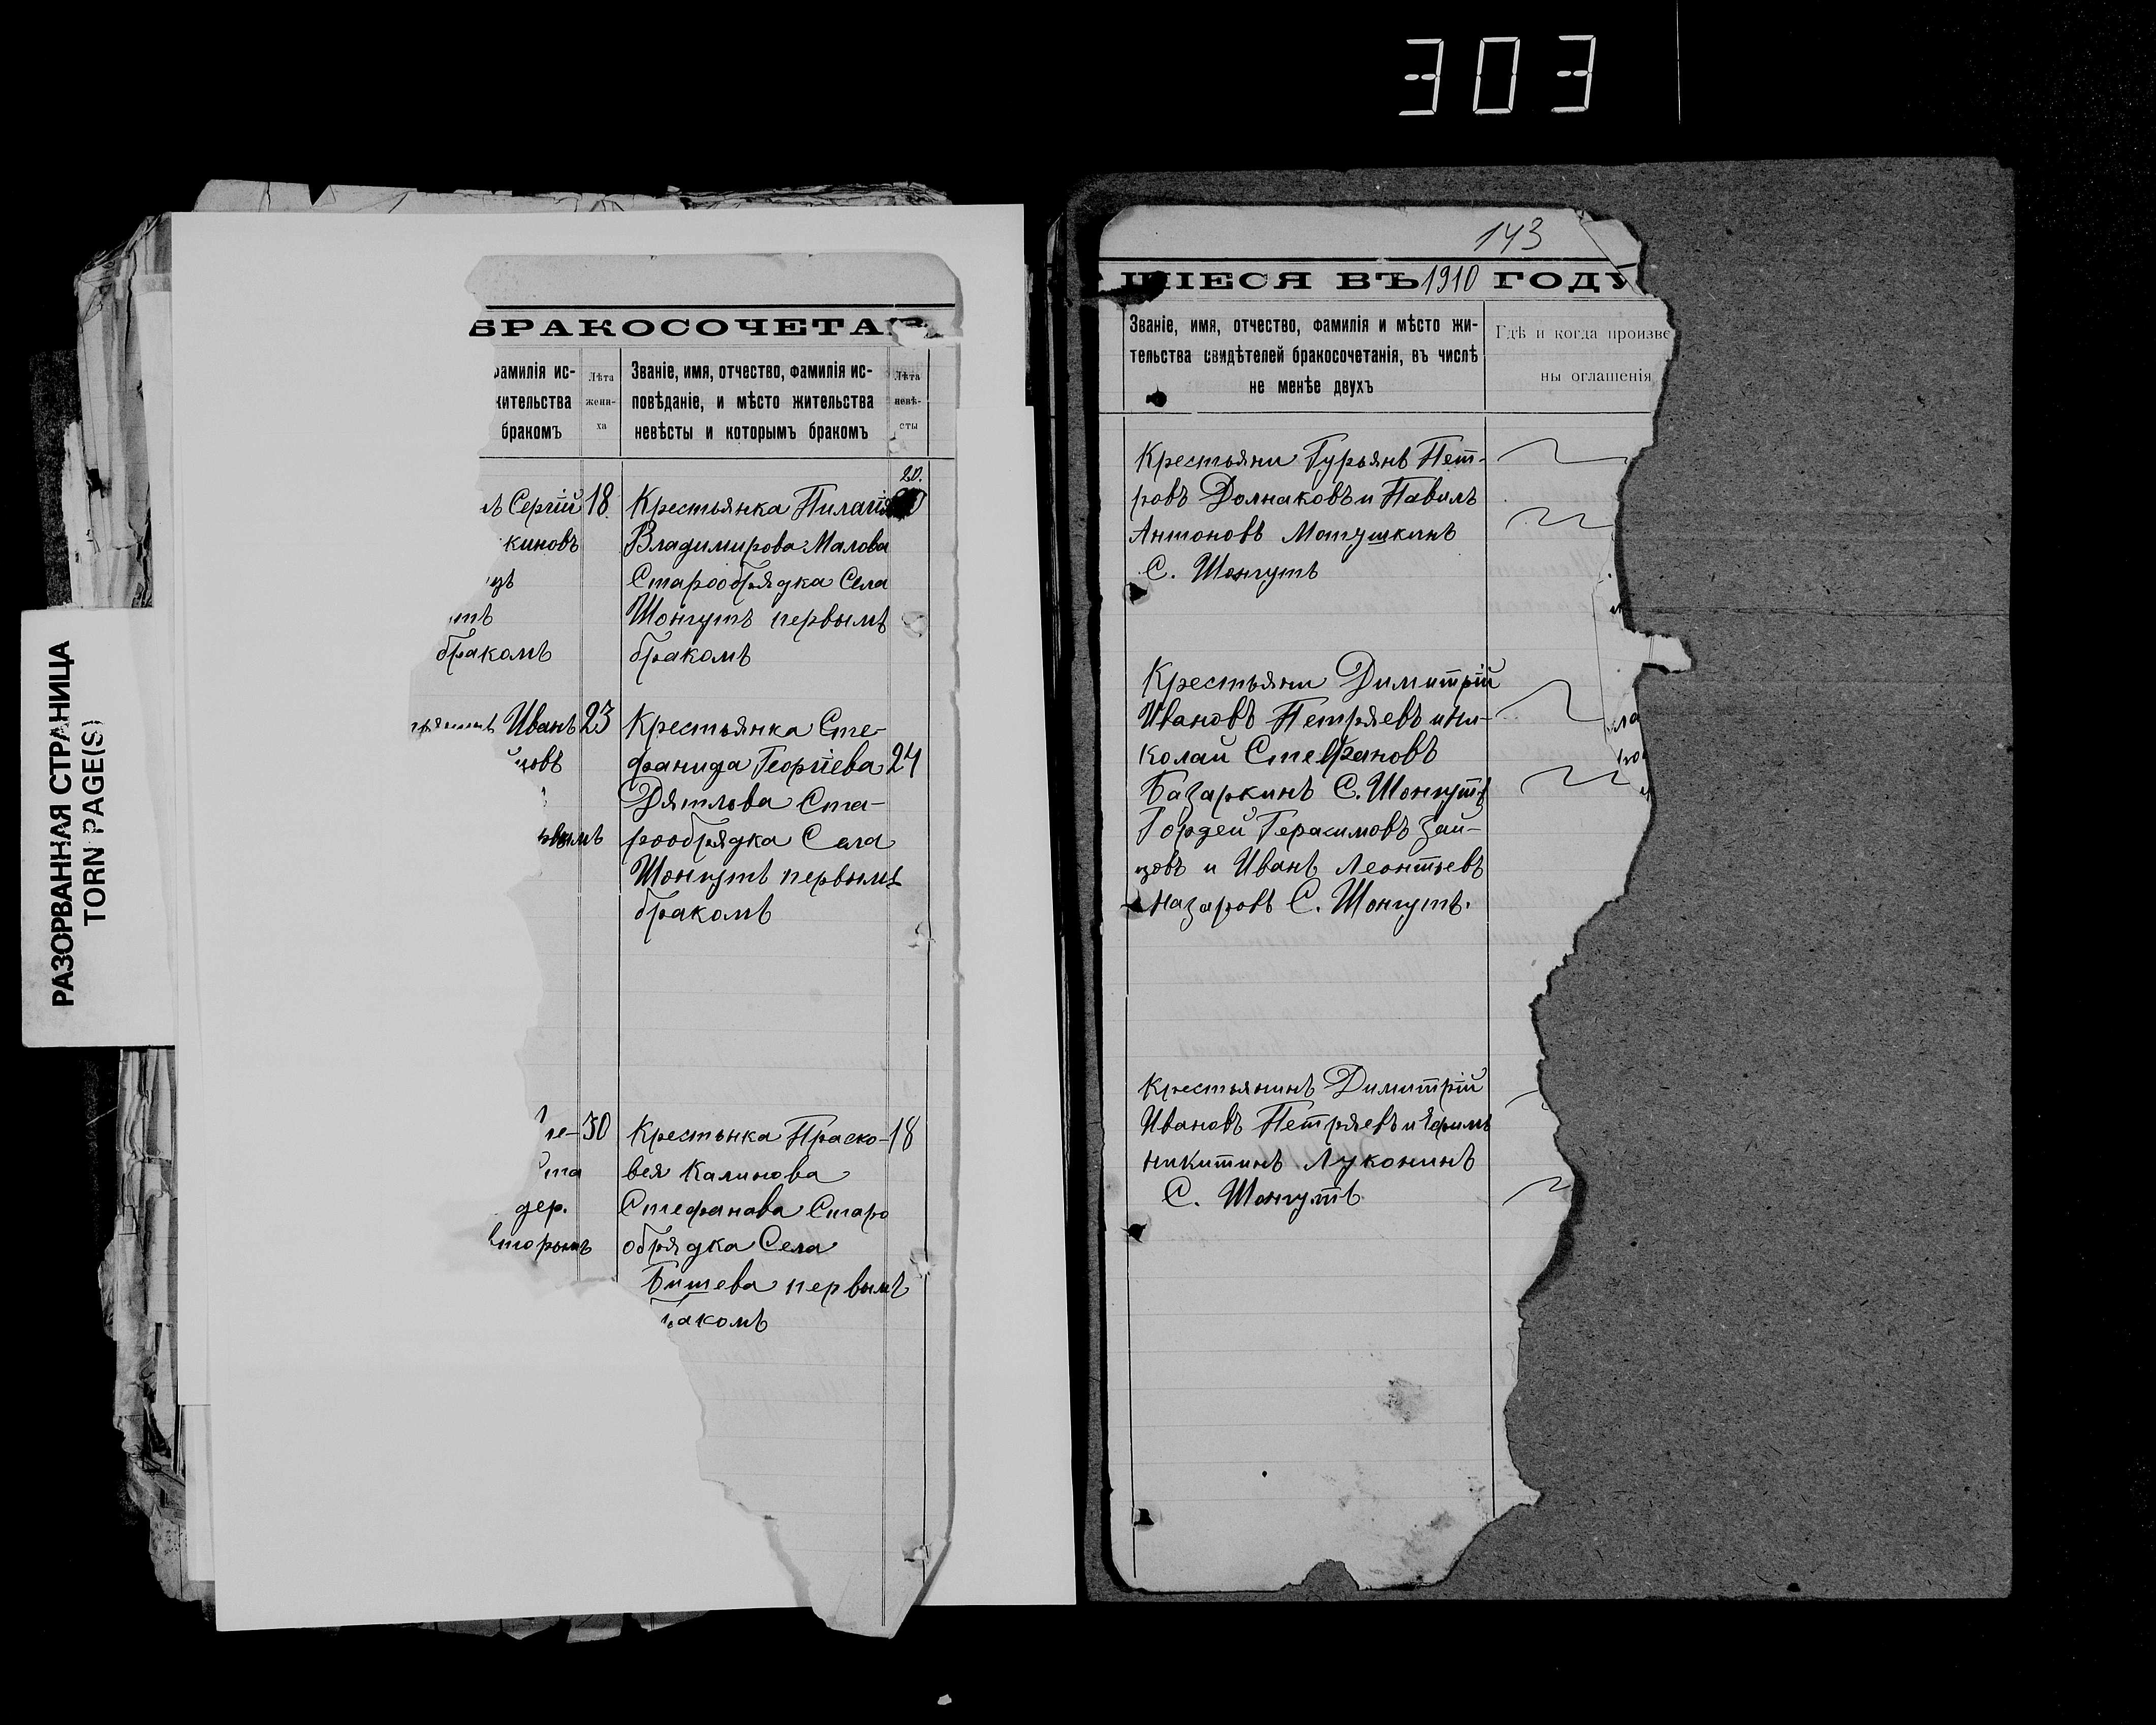 303
РАЗОРВАННАЯ СТРАНИЦА
TORN PAGE(S)
БРАКОСОЧЕТА
фамилія ис-
жительства
бракомъ
Лѣта
жени-
ха
Званіе, имя, отчество, фамилія ис-
повѣданіе, и мѣсто жительства
невѣсты и которымъ бракомъ
Лѣта
невѣ-
сты
Сергій 18
киновъ
бракомъ
20.
Крестьянка Пилагія
Владимирова Малова
Старообрядка Села
Шонгутъ первымъ
бракомъ
Иванъ 23
Крестьянка Сте-
фанида Георгіева 24
Дятлова Ста-
рообрядка Села
Шонгутъ первымъ
бракомъ
30
дер.
вторымъ
Крестьнка Праско- 18
вея Калинова
Стефанова Старо
обрядка Села
Бишева первымъ
бракомъ
143
ШІЕСЯ ВЪ 1910 ГОДУ
Званіе, имя, отчество, фамилія и мѣсто жи-
тельства свидѣтелей бракосочетанія, въ числѣ
не менѣе двухъ
Гдѣ и когда произве
ны оглашенія
Крестьяни Гурьянъ Пет-
ровъ Долнаковъ и Павилъ
Антоновъ Матушкинъ
С. Шонгутъ
Крестьяни Димитрій
Ивановъ Петряевъ и Ни-
колай Стефановъ
Базаркинъ С. Шонгутъ
Гордей Герасимовъ Зай-
цовъ и Иванъ Леонтьевъ
Назаровъ С. Шонгутъ.
Крестьянинъ Димитрій
Ивановъ Петряевъ и Ефимъ
Никитинъ Луконинъ
С. Шонгутъ